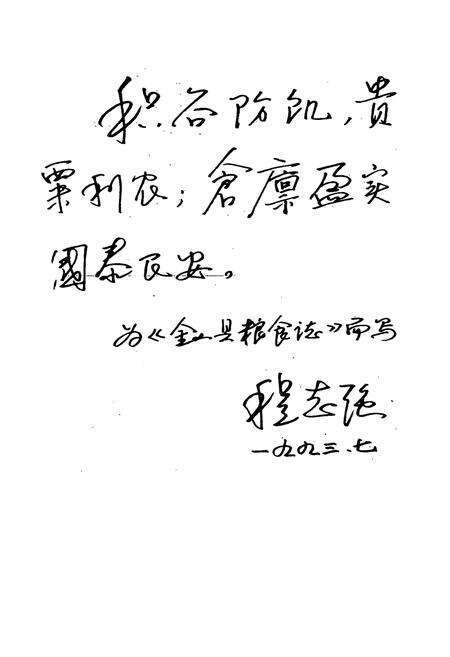 积谷防饥，貴
粟利农；倉廪盈实
國泰民安。
为《金山县粮食志》而写
程志强
一九九三.七